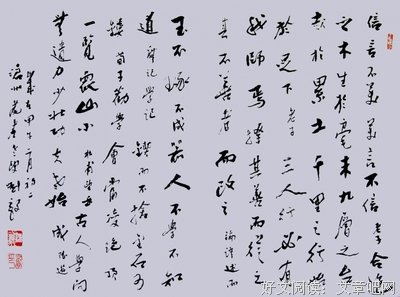 信言不美美言不信 老子 合抱
之木生於毫末九層之台
起於累土千里之行始
於足下 老子 三人行必有
我師焉擇其善而從之
其不善者而改之 論語述而
玉不琢不成器人不學不知
道 禮記學記 鍥而不捨金石可
鏤 荀子勸學 會當凌絕頂
一覽眾山小 杜甫望岳 古人學問
無遺力少壯功夫老始成 陸游
二月初二
滄州
好文阅读：文章吧网